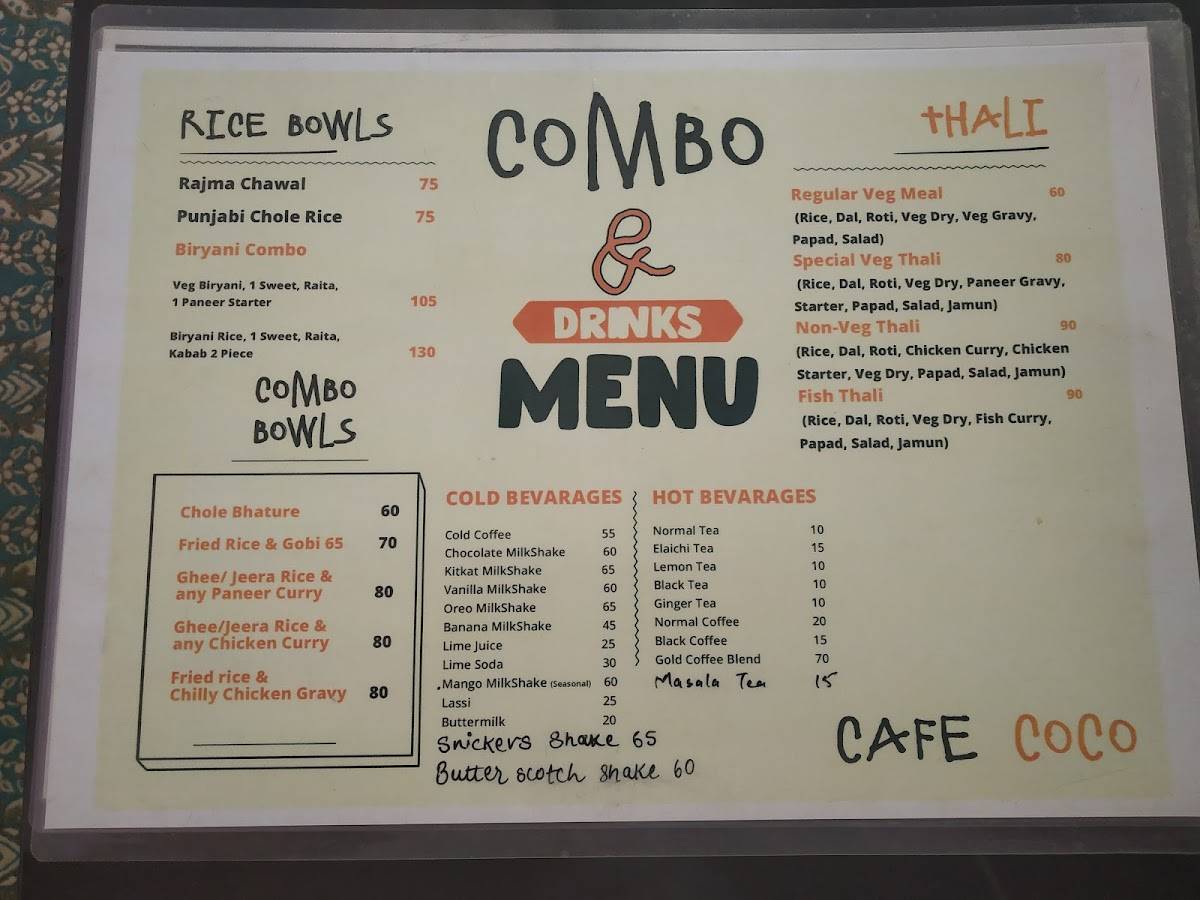 RICE BOWLS
Rajma Chawal 75
Punjabi Chole Rice 75
Biryani Combo
Veg Biryani, 1 Sweet, Raita,
1 Paneer Starter 105
Biryani Rice, 1 Sweet, Raita,
Kabab 2 Piece 130
COMBO
BOWLS
Chole Bhature 60
Fried Rice & Gobi 65 70
Ghee/ Jeera Rice &
any Paneer Curry 80
Ghee/Jeera Rice &
any Chicken Curry 80
Fried rice &
Chilly Chicken Gravy 80
COMBO
&
DRINKS
MENU
THALI
Regular Veg Meal 60
(Rice, Dal, Roti, Veg Dry, Veg Gravy,
Papad, Salad)
Special Veg Thali 80
(Rice, Dal, Roti, Veg Dry, Paneer Gravy,
Starter, Papad, Salad, Jamun)
Non-Veg Thali 90
(Rice, Dal, Roti, Chicken Curry, Chicken
Starter, Veg Dry, Papad, Salad, Jamun)
Fish Thali 90
(Rice, Dal, Roti, Veg Dry, Fish Curry,
Papad, Salad, Jamun)
COLD BEVARAGES
Cold Coffee 55
Chocolate MilkShake 60
Kitkat MilkShake 65
Vanilla MilkShake 60
Oreo MilkShake 65
Banana MilkShake 45
Lime Juice 25
Lime Soda 30
Mango MilkShake (Seasonal) 60
Lassi 25
Buttermilk 20
Snickers Shake 65
Butter scotch shake 60
HOT BEVARAGES
Normal Tea 10
Elaichi Tea 15
Lemon Tea 10
Black Tea 10
Ginger Tea 10
Normal Coffee 20
Black Coffee 15
Gold Coffee Blend 70
Masala Tea 15
CAFE COCO